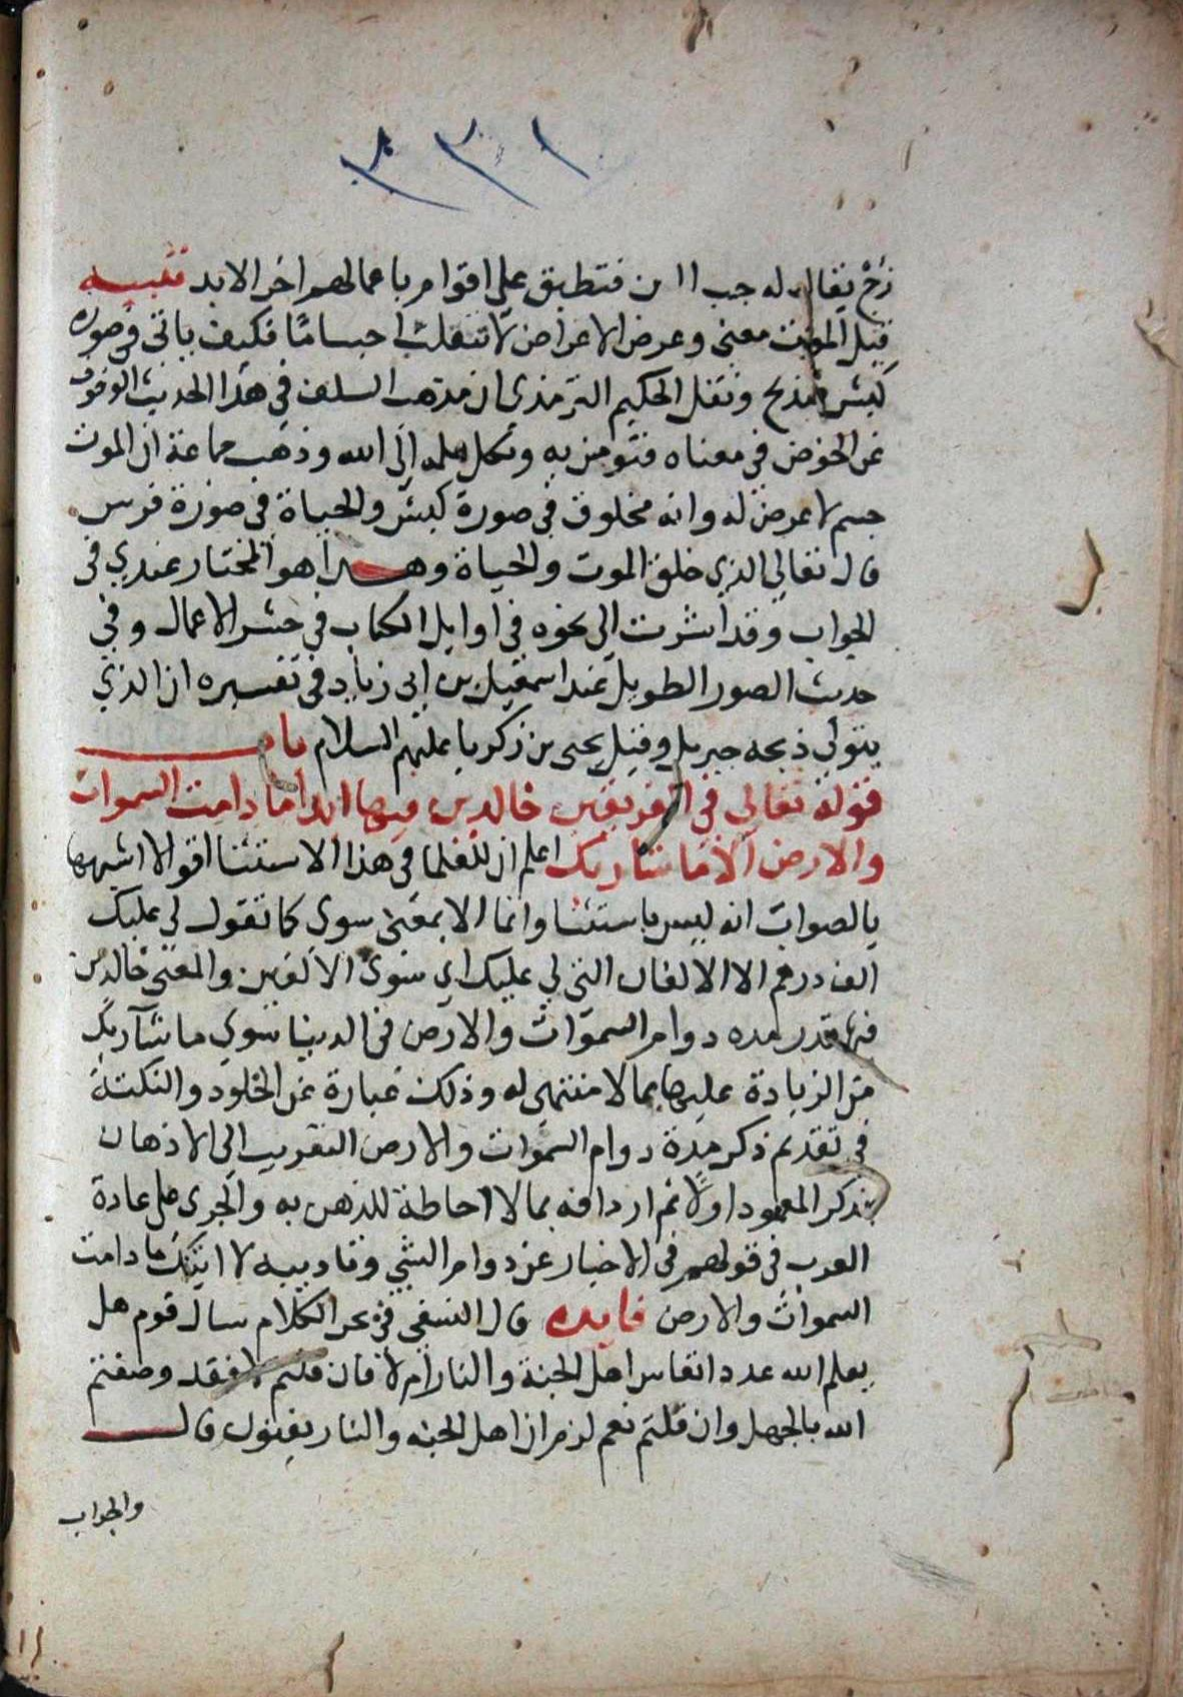 ١٣٣
زخ يقال له جب الن فتطبق على اقوام باعمالهم اخر الابد تنبيه
قيل الموت معنى وعرض الاعراض لا تنقلب اجساما فكيف ياتي في صورة
كبش فيذبح ونقل الحكيم الترمذي ان مذهب السلف في هذا الحديث الوقوف
عن الخوض في معناه فنومن به ونكل علمه الى الله وذهب جماعة ان الموت
جسم لا عرض له وانه مخلوق في صورة كبش والحياة في صورة فرس
قال تعالى الذي خلق الموت والحياة وهذا هو المختار عندي في
الجواب وقد اشرت الى نحوه في اوايل الكتاب في حشر الاعمال وفي
حديث الصور الطويل عند اسمعيل بن ابي زياد في تفسيره ان الذي
يتولى ذبحه جبريل وقيل يحيى بن زكريا عليهم السلام باب
قوله تعالى في الفريقين خالدين فيها ابدا ما دامت السموات
والارض الا ما شآ ربك اعلم ان للعلما في هذا الاستثنا اقوالا اشبهها
بالصواب انه ليس باستثنا وانما الا بمعنى سوى كما تقول لي عليك
الف درهم الا الالفان التي لي عليك اي سوى الالفين والمعنى خالدين
فيها قدر مده دوام السموات والارض في الدنيا سوى ما شآ ربك
من الزيادة عليها بما لا منتهى له وذلك عبارة عن الخلود والنكتة
في تقديم ذكر مدة دوام السموات والارض التقريب الى الاذهان
بذكر المعهود اولا ثم اردافه بما لا احاطة للذهن به والجرى على عادة
العرب في قولهم في الاخبار عن دوام الشي وتاديبه لا اتيتك ما دامت
السموات والارض فايده قال النسفي في بحر الكلام سال قوم هل
يعلم الله عدد انفاس اهل الجنة والنار ام لا فان قلتم لا فقد وصفتم
الله بالجهل وان قلتم نعم لزم ان اهل الجنه والنار يفنون قال
والجواب